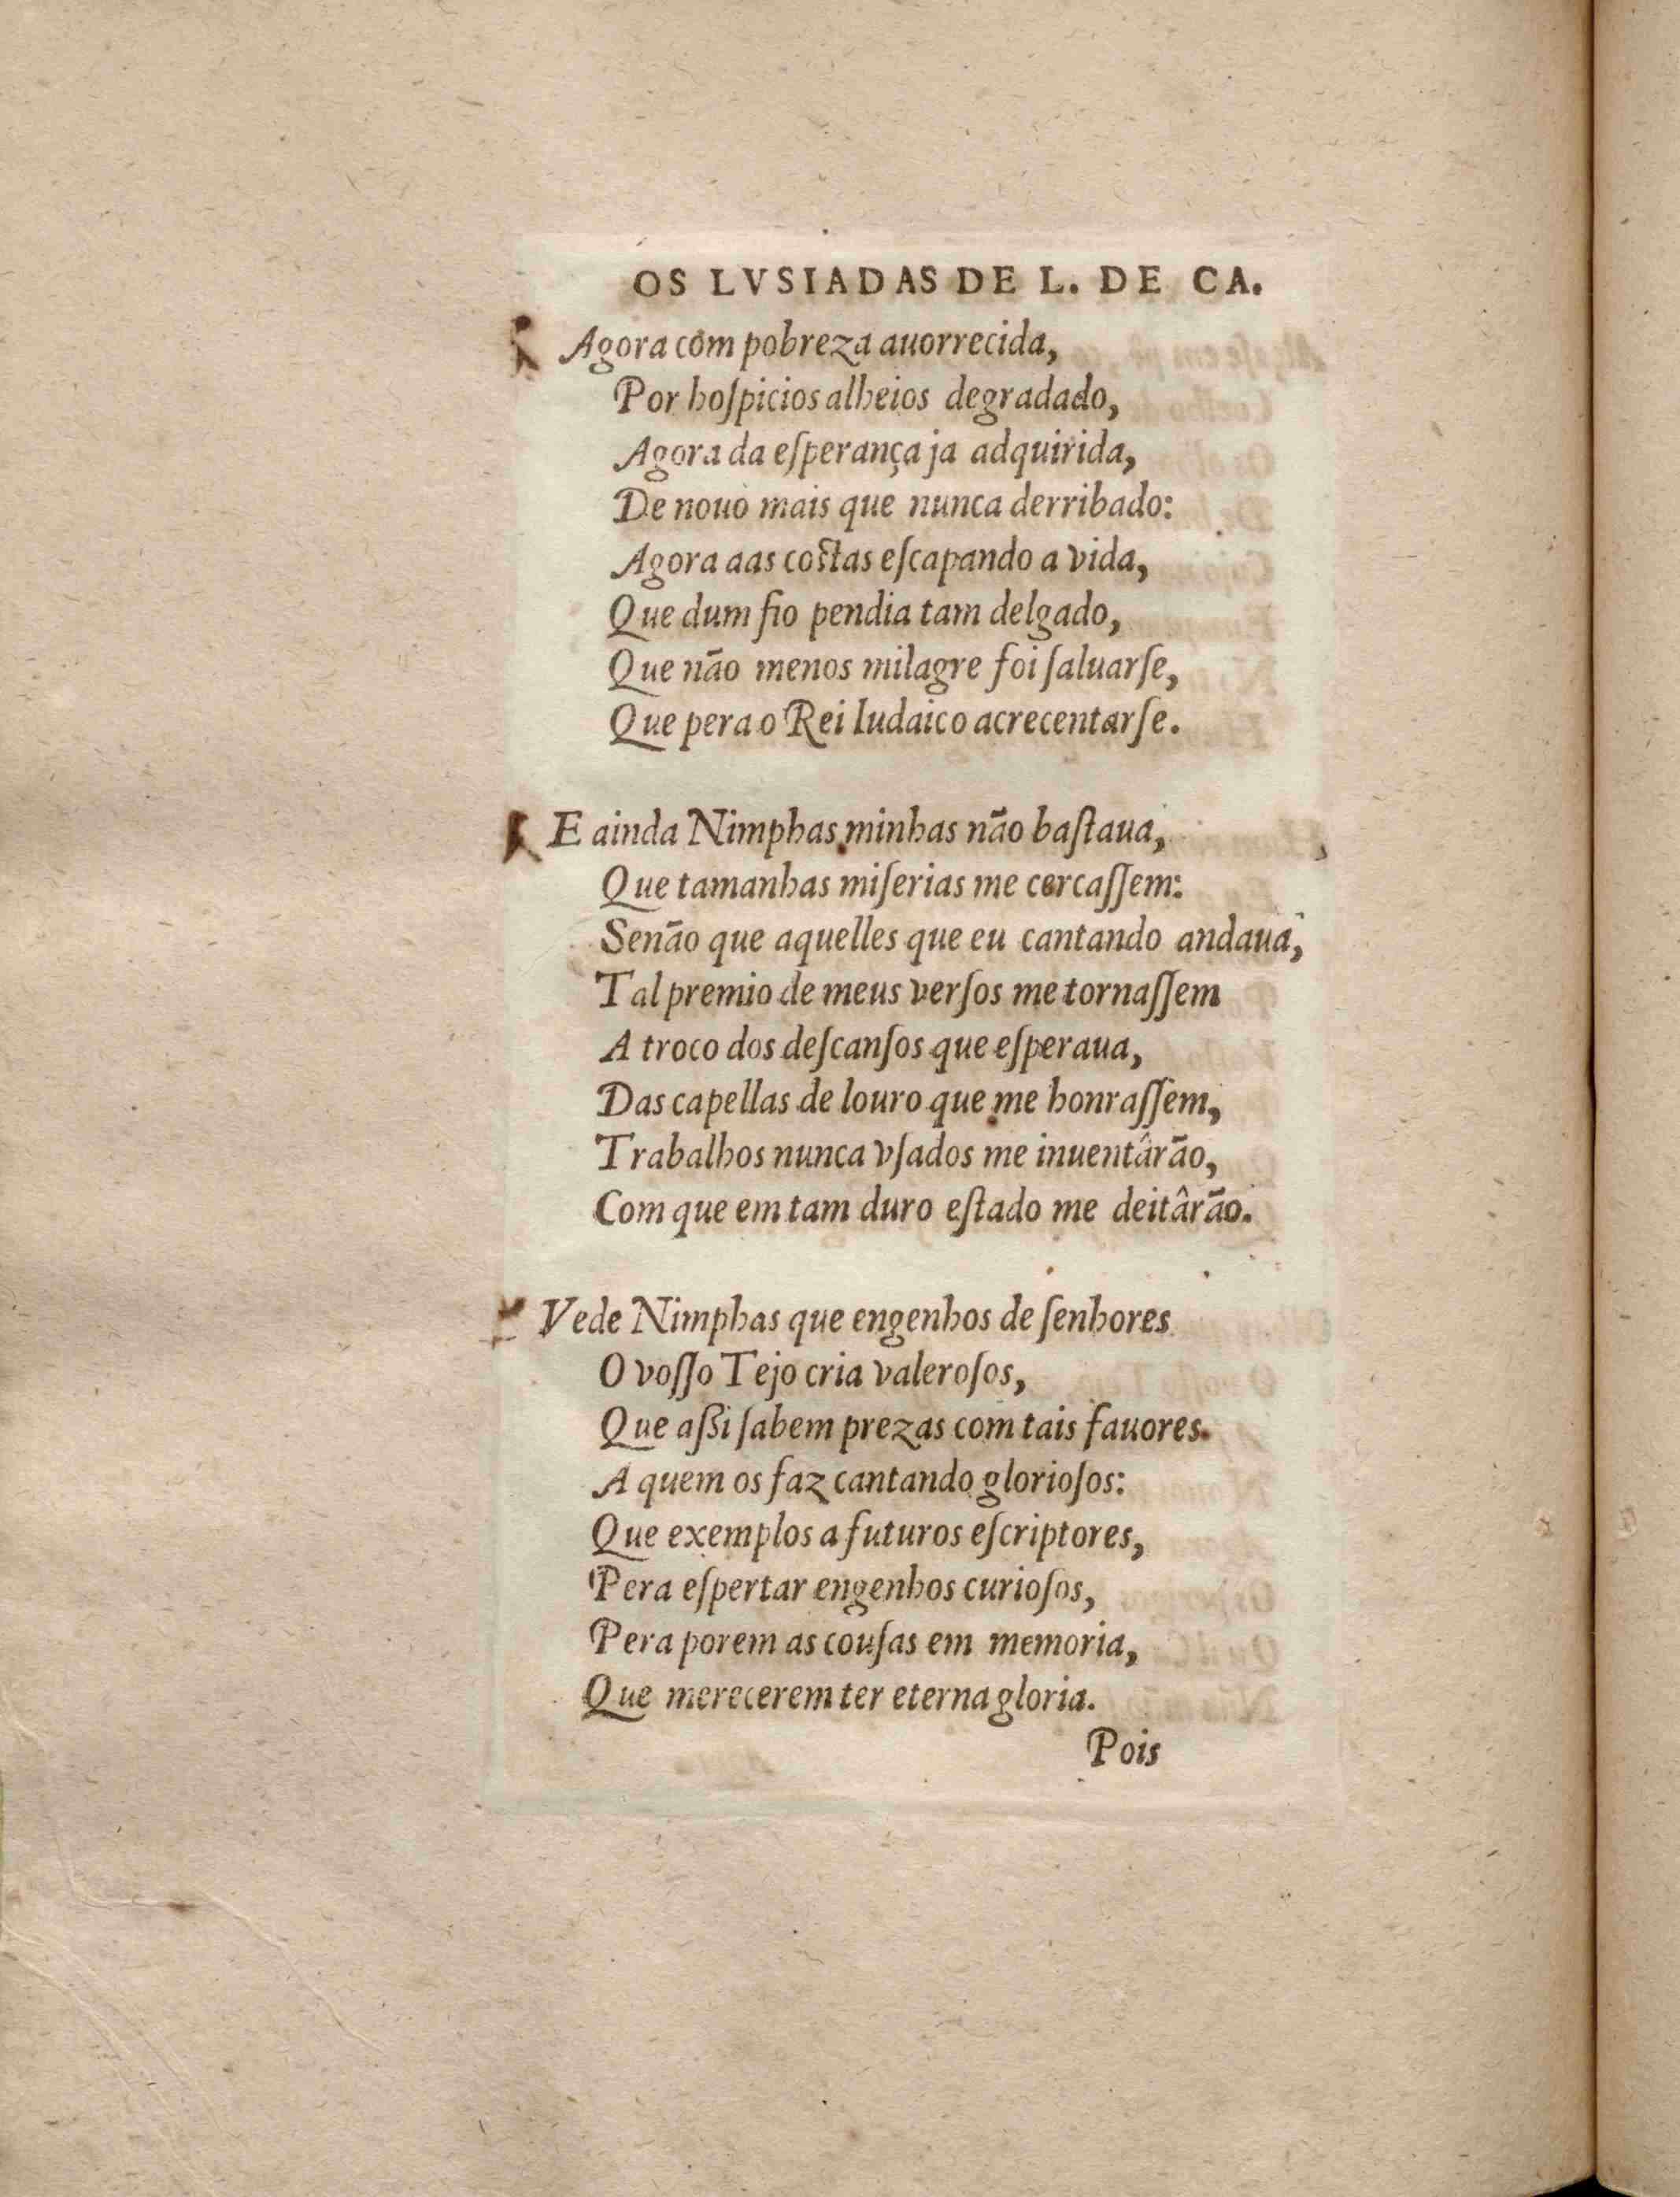 OS LVSIADAS DE L. DE CA.
Agora com pobreza auorrecida,
Por hoſpicios alheios degradado,
Agora da eſperança ja adquirida,
De nouo mais que nunca derribado:
Agora aas coſtas eſcapando a vida,
Que dum fio pendia tam delgado,
Que não menos milagre foi ſaluarſe,
Que pera o Rei Iudaico acrecentarſe.
E ainda Nimphas minhas não baſtaua,
Que tamanhas miſerias me cercaſſem:
Senão que aquelles que eu cantando andaua,
Tal premio de meus verſos me tornaſſem
A troco dos deſcanſos que eſperaua,
Das capellas de louro que me honraſſem,
Trabalhos nunca vſados me inuentârão,
Com que em tam duro eſtado me deitârão.
Vede Nimphas que engenhos de ſenhores
O voſſo Tejo cria valeroſos,
Que aßi ſabem prezas com tais fauores.
A quem os faz cantando glorioſos:
Que exemplos a futuros eſcriptores,
Pera eſpertar engenhos curioſos,
Pera porem as couſas em memoria,
Que merecerem ter eterna gloria.
Pois